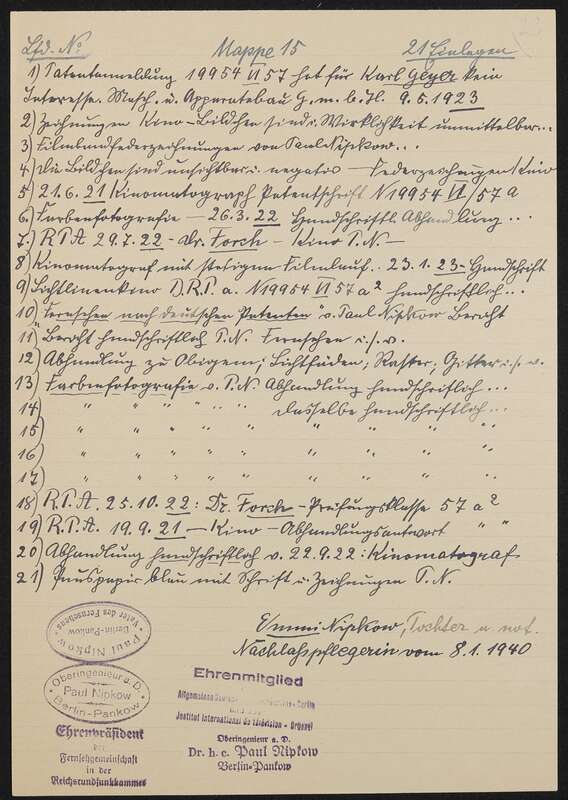 Lfd. No Mappe 15 21 Einlagen
1) Patentanmeldung 19954 VI 57 hat für Karl Geyer kein
Interesse. Masch. u. Apparatebau G.m.b.H. 9.5.1923
2) Zeichnungen Kino-Bildchen sind i. Wirklichkeit unmittelbar...
3) Filmbandfederzeichnungen von Paul Nipkow...
4) Die Bildchen sind unsichtbar i. negativ — Federzeichnungen Kino
5) 21.6.21 Kinomatograph Patentschrift N 19954 VI/57 a
6) Farbenfotografie — 26.3.22 Handschriftl. Abhandlung...
7) R.P.A 29.7.22 - Dr. Forch - Kino P.N.—
8) Kinomatograf mit stetigem Filmlauf.. 23.1.23 - Handschrift
9) Lichtlinienkino D.R.P. a. N 19954 VI 57 a² handschriftlich...
10) "Fernsehen nach deutschen Patenten" v. Paul Nipkow Bericht
11) Bericht handschriftlich P.N. Fernsehen i.s.v.
12) Abhandlung zu Obigem; Lichtfäden, Raster, Gitter i.s.v.
13) Farbenfotografie v. P.N. Abhandlung handschriftlich...
14) " " " " " " dasselbe handschriftlich...
15) " " " " " " " " " "
16) " " " " " " " " " "
17) " " " " " " " " " "
18) R.P.A. 25.10.22: Dr. Forch - Prüfungsklasse 57 a²
19) R.P.A. 19.9.21 — Kino - Abhandlungsantwort " "
20) Abhandlung handschriftlich v. 22.9.22: Kinomatograf
21) Pauspapier blau mit Schrift u. Zeichnungen P.N.
Emmi Nipkow, Tochter u. not.
Nachlaßpflegerin vom 8.1.1940
Paul Nipkow
Berlin-Pankow
Vater des Fernsehens
Oberingenieur a. D.
Paul Nipkow
Berlin-Pankow
Ehrenpräsident
der
Fernsehgemeinschaft
in der
Reichsrundfunkkammer
Ehrenmitglied
Berlin
Institut International de Télévision -
Oberingenieur a. D.
Dr. h. c. Paul Nipkow
Berlin-Pankow